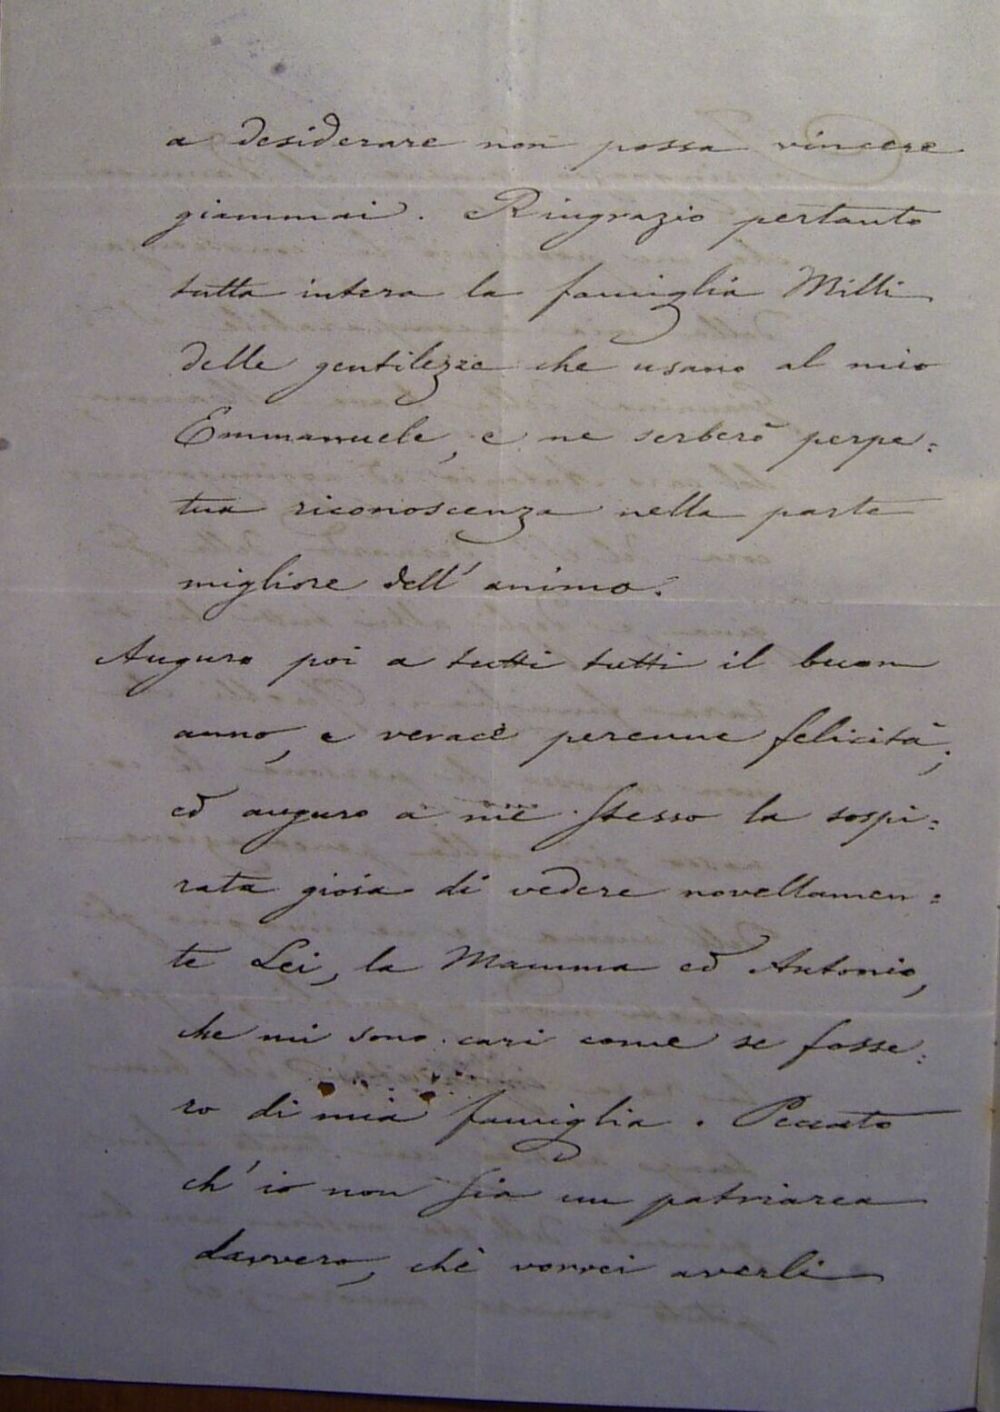 a desiderare non possa vincere
giammai. Ringrazio pertanto
tutta intera la famiglia Milli
delle gentilezze che usano al mio
Emmanuele, e ne serberò perpe=
tua riconoscenza nella parte
migliore dell'animo.
Auguro poi a tutti tutti il buon
anno, e verace perenne felicità;
ed auguro a me stesso la sospi=
rata gioia di vedere novellamen=
te Lei, la Mamma ed Antonio,
che mi sono cari come se fosse=
ro di mia famiglia. Peccato
ch'io non sia un patriarca
davvero, chè vorrei averli